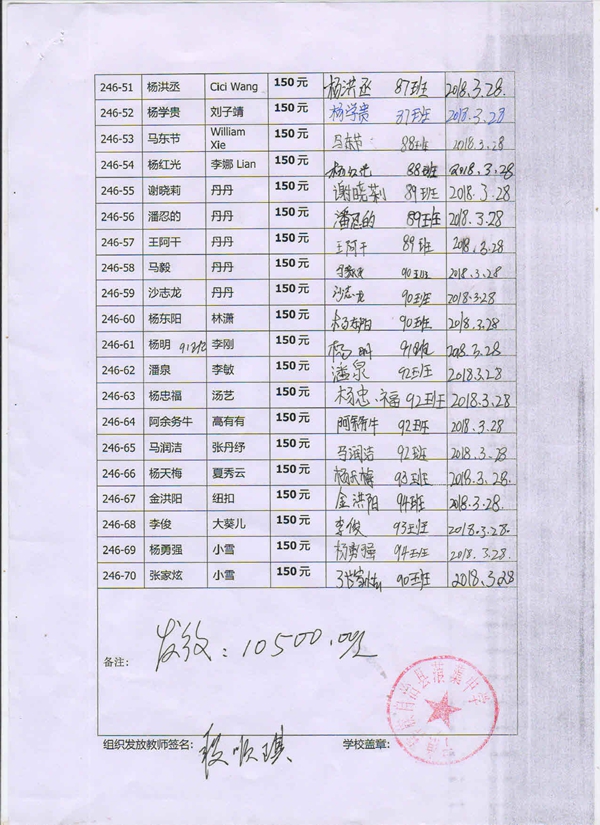 246-51 杨洪丞 Cici Wang 150元 杨洪丞 87班 2018.3.28.
246-52 杨学贵 刘子靖 150元 杨学贵 87班 2018.3.28
246-53 马东节 William Xie 150元 马东节 88班 2018.3.28
246-54 杨红光 李娜 Lian 150元 杨红光 88班 2018.3.28
246-55 谢晓莉 丹丹 150元 谢晓莉 89班 2018.3.28
246-56 潘忍的 丹丹 150元 潘忍的 89班 2018.3.28
246-57 王阿干 丹丹 150元 王阿干 89班 2018.3.28
246-58 马毅 丹丹 150元 马毅 90班 2018.3.28
246-59 沙志龙 丹丹 150元 沙志龙 90班 2018.3.28
246-60 杨东阳 林潇 150元 杨东阳 90班 2018.3.28
246-61 杨明 91班 李刚 150元 杨明 91班 2018.3.28
246-62 潘泉 李敏 150元 潘泉 92班 2018.3.28
246-63 杨忠福 汤艺 150元 杨忠福 92班 2018.3.28
246-64 阿余务牛 高有有 150元 阿余务牛 92班 2018.3.28
246-65 马润洁 张丹纾 150元 马润洁 92班 2018.3.28
246-66 杨天梅 夏秀云 150元 杨天梅 93班 2018.3.28
246-67 金洪阳 纽扣 150元 金洪阳 94班 2018.3.28.
246-68 李俊 大葵儿 150元 李俊 93班 2018.3.28.
246-69 杨勇强 小雪 150元 杨勇强 94班 2018.3.28.
246-70 张家炫 小雪 150元 张家炫 90班 2018.3.28
备注： 发放：10500.00元
组织发放教师签名： 段顺琪 学校盖章：
自治县 中学